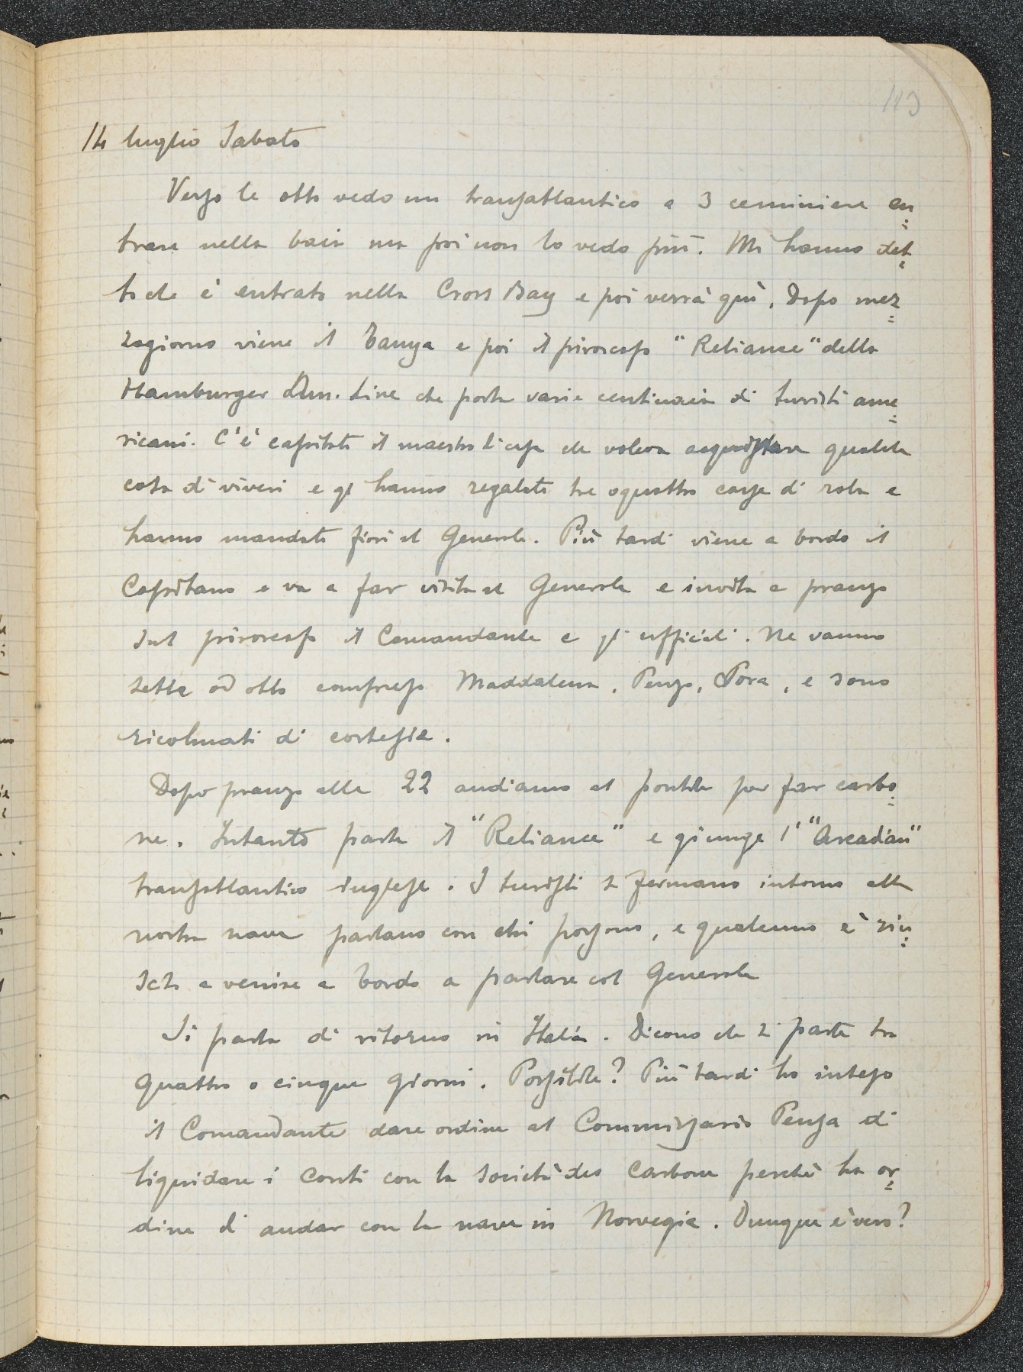 113
14 luglio Sabato
Verso le otto vedo un transatlantico a 3 ciminiere en=
trare nella baia ma poi non lo vedo più. Mi hanno det=
to che è entrato nella Cross Bay e poi verrà quì. Dopo mez=
zogiorno viene il Tanya e poi il piroscafo "Reliance" della
Hamburger Am. Line che porta varie centinaia di turisti ame=
ricani. C'è capitato il maestro che voleva acquistare qualche
cosa di viveri e gl hanno regalato tre o quattro casse di roba e
hanno mandato fiori al Generale. Più tardi viene a bordo il
Capitano e va a far visita al Generale e invita a pranzo
sul piroscafo il Comandante e gli ufficiali. Ne vanno
sette od otto compreso Maddalena, Penzo, Pora, e sono
ricolmati di cortesia.
Dopo pranzo alle 22 andiamo al pontile per far carbo=
ne. Intanto parte il "Reliance" e giunge l'"Arcadian"
transatlantico inglese. I turisti si fermano intorno alla
nostra nave parlano con chi possono, e qualcuno è riu=
scito a venire a bordo a parlare col Generale
Si parla di ritorno in Italia. Dicono che si parte tra
quattro o cinque giorni. Possibile? Più tardi ho inteso
il Comandante dare ordine al Commissario Pensa di
liquidare i conti con la società del carbone perchè ha or=
dine di andar con la nave in Norvegia. Dunque è vero?